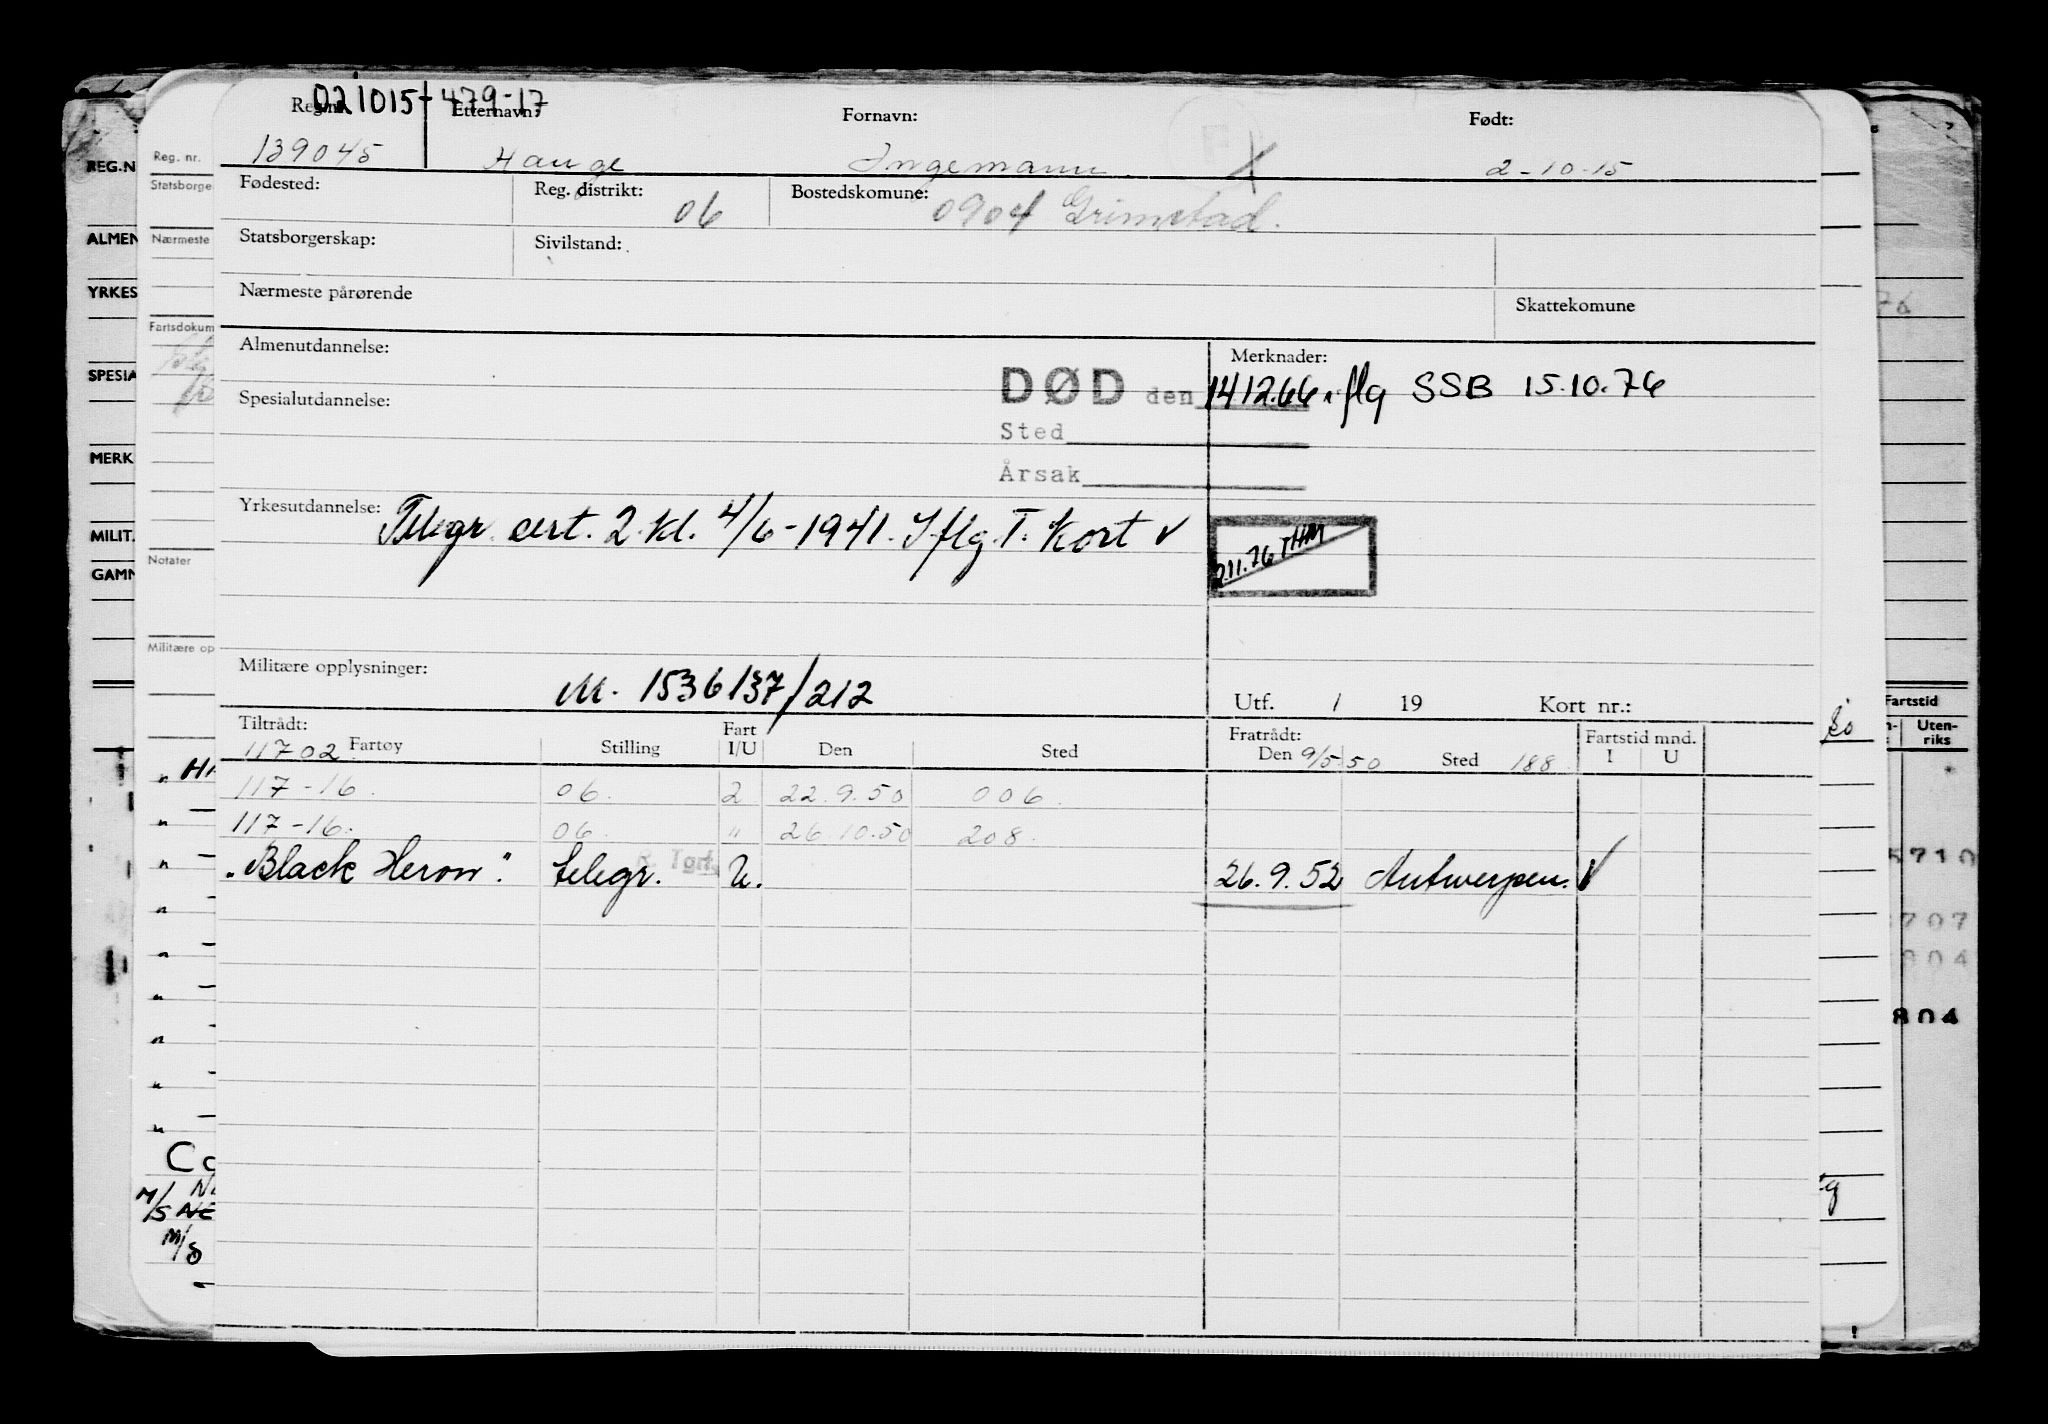 021015-479-17
Reg.nr. Etternavn: Fornavn: Født:
139045 Hauge Ingemann 2-10-15
Fødested: Reg. distrikt: 06 Bostedskomune: 0904 Grimstad.
Statsborgerskap: Sivilstand:
Nærmeste pårørende Skattekomune
Almenutdannelse: Merknader:
DØD den 141266 iflg SSB 15.10.76
Spesialutdannelse:
Sted
Årsak
Yrkesutdannelse: Telegr. cert. 2. kl. 4/6-1941. Iflg. T. Kort ✓
2.11.76 THM
Militære opplysninger: M. 1536137/212
Utf. / 19 Kort nr.:
Tiltrådt: Fart Fratrådt: Fartstid mnd.
11702. Fartøy Stilling I/U Den Sted Den 9/5 50 Sted 188 I U
117-16. 06. 2 22.9.50 006.
117-16. 06. " 26.10.50 208.
"Black Heron". telegr. U. 26.9.52 Antwerpen. ✓
REG.N
ALMEN
YRKES
SPESIA
MERK
MILIT.
GAMN
Reg. nr.
Statsborge
Nærmeste
Fartsdokum
Notater
Militære op
Fartstid
Uten-
riks
5710
707
804
804